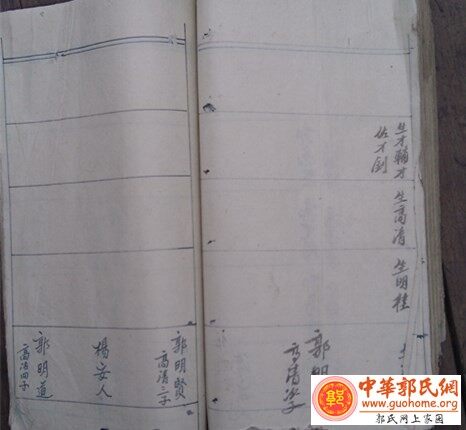 生才輔才 生高清 生明桂
佐才劍
郭明
高清次子
郭明賢
高清三子
楊安人
郭明道
高清四子
中華郭氏網
www.guohome.org
郭氏网上家园